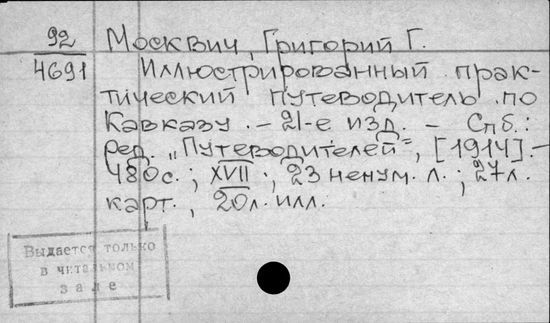 92
4691
Москвич, Григорий Г.
Иллюстрированный прак-
тический путеводитель по
Кавказу. - 21-е изд. - Спб.:
ред. „Путеводителей", [1914].-
480с.; XVII.; 23 ненум. л.; 27л.
карт., 20л. илл.
Выдается только
в читальном
зале